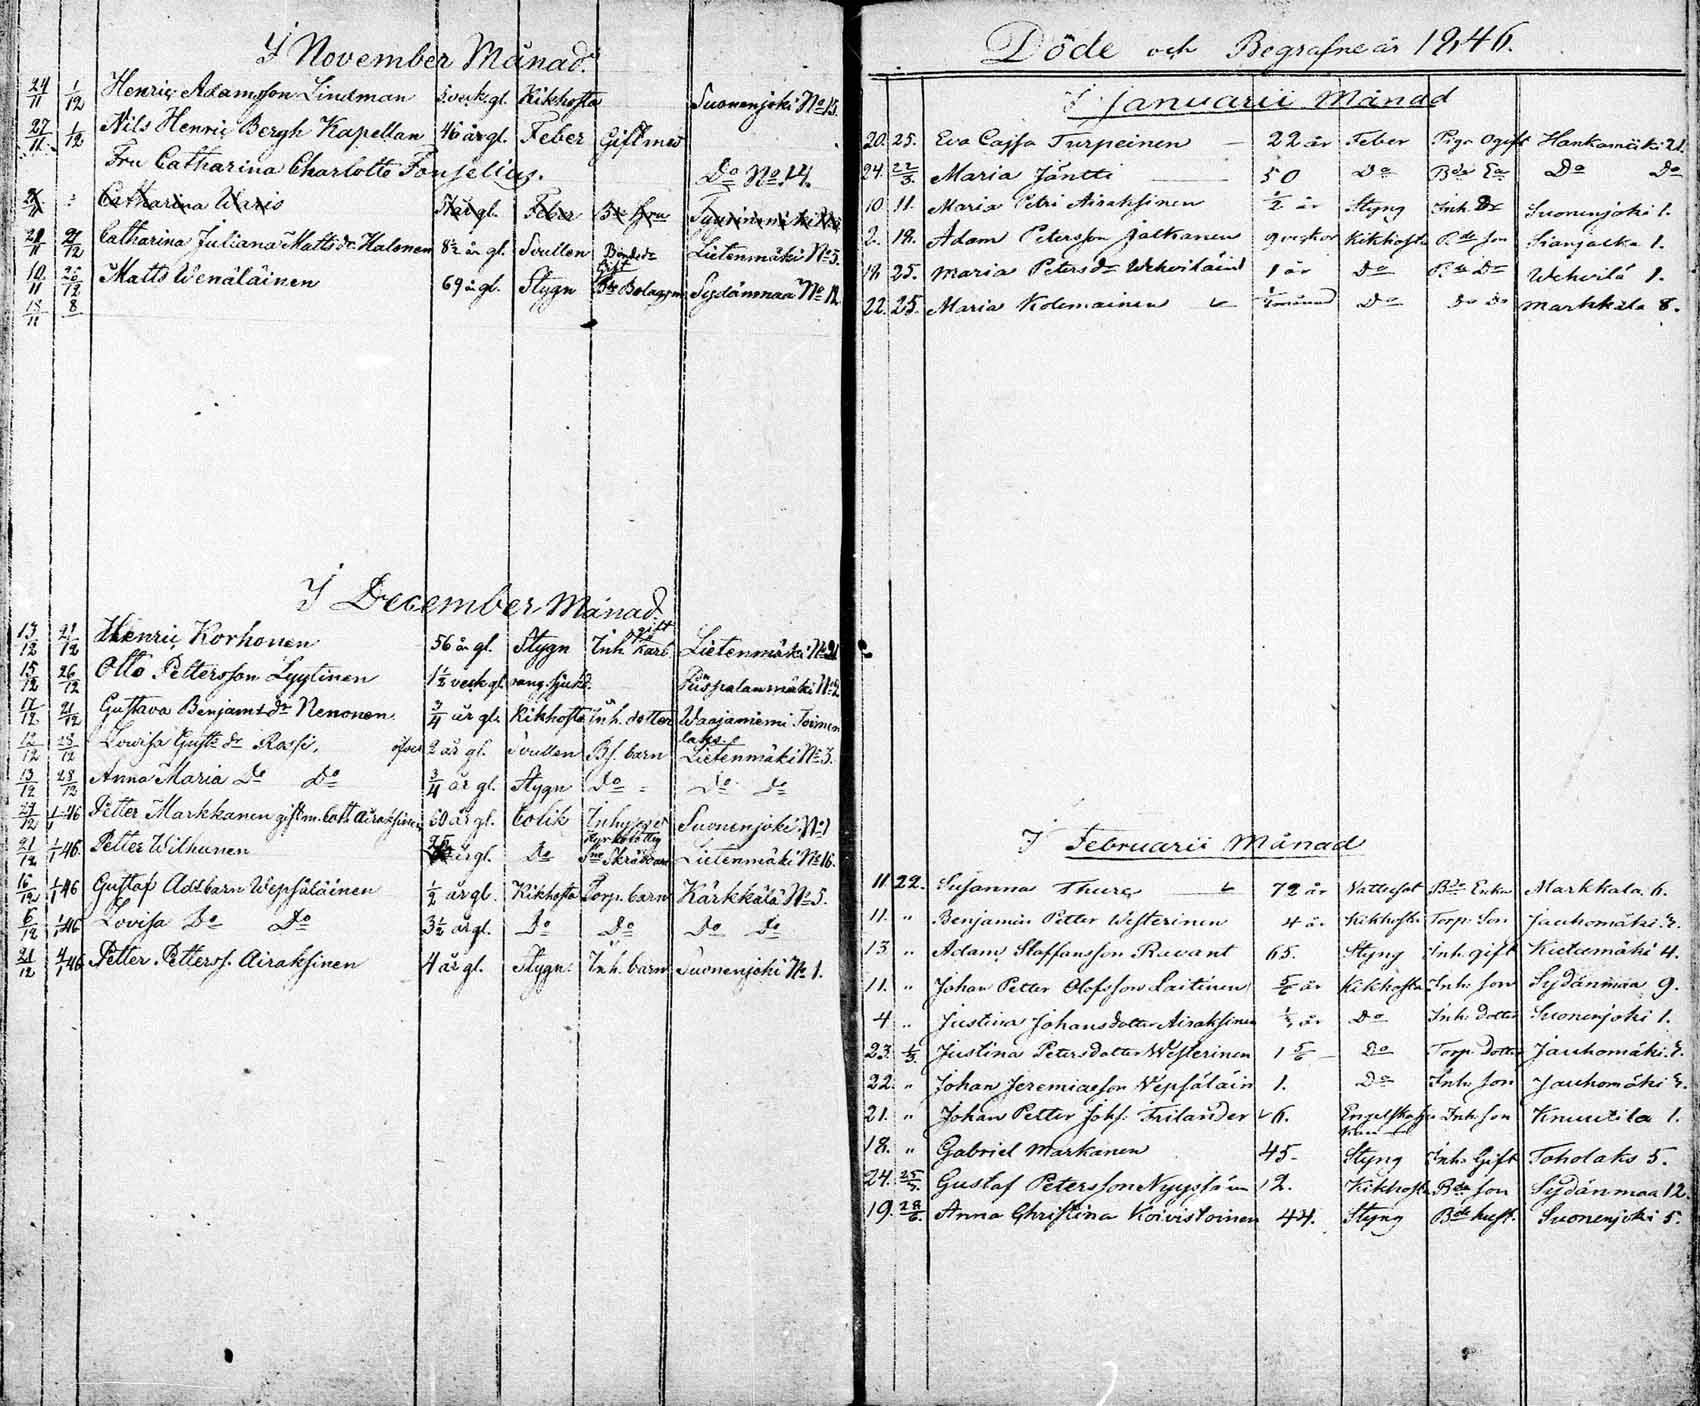 I November Månad.
24/11 1/12 Henric Adamsson Lindman 5 veck. gl. Kikhosta Suonenjoki No 15.
27/11 1/12 Nils Henric Bergh Kapellan 46 år gl. Feber Gift med
Fru Catharina Charlotta Fonselius. Do No 14.
Catharina Waris år gl. Feber
21/12 Catharina Juliana Matts dr Halonen 8 1/2 år gl. Svullen Bonde dr Lietenmäki No 3.
10/11 26/12 Matts Wenäläinen 69 år gl. Stygn gift Bolagsm Sydänmaa No 12.
18/11 8
I December Månad.
13/12 21/12 Henric Korhonen 56 år gl. Stygn Inh. Karl gift Lietenmäki No 21
15/12 26/12 Otto Pettersson Lyytinen 1 1/2 veck gl. Piispalanmäki No 2.
21/12 Gustava Benjam:s dr Nenonen 3/4 år gl. Kikhosta Inh. dotter Waajaniemi Toimen
laks.
12/12 28/12 Lovisa Gust: dr Rossi. öfver 2 år gl. Svullen Bs. barn Lietenmäki No 3.
13/12 28/12 Anna Maria Do Do 3/4 år gl. Stygn Do Do Do
1/1 46 Petter Markkanen gift m. Cath Airaksinen 60 år gl. Colik Inhyses Suonenjoki No 1
21/12 1/1 46. Petter Wilhunen år gl. Do Kyrkofattig Lietenmäki No 16.
16/12 1/1 46 Gustaf Ads barn Wepsäläinen 1/2 år gl. Kikhosta Torp. barn Kärkkälä No 5.
6/12 1/1 46 Lovisa Do Do 3 1/2 år gl. Do Do Do Do
21/12 4/1 46 Petter Petterss. Airaksinen 4 år gl. Stygn. Inh. barn Suonenjoki No 1.
Döde och Begrafne år 1846.
I Januarii Månad
20. 25. Eva Cajsa Turpeinen 22 år Feber Pig. Ogift Hankamäki 21.
24. 22/3. Maria Jäntti 50 Do Bde Ea Do Do
10 11. Maria Petri Airaksinen 1/2 år Styng Inh. Dr Suonenjoki 1.
2. 18. Adam Petersson Jalkanen 9 veckor Kikhosta B.de son Sianjalka 1.
18 25. Maria Petersdr Wehviläin 1 år Do B.de Do Wehvilä 1.
22. 25. Maria Kolemainen månad Do Do Do Markkala 8.
I Februarii Månad
11 22. Susanna Thure 72 år Vattusot Bde Enka Markkala 6.
11. " Benjamin Petter Westerinen 4 år Kikhosta Torp. Son Jauhomäki 2.
13 " Adam Staffansson Ruvant 65. Styng Inh. gift Kutumäki 4.
11. " Johan Petter Olofsson Laitinen 5/6 år Kikhosta Inh. Son Sydänmaa 9.
4 " Justina Johans dotter Airaksinen år Do Inh. dotter Suonenjoki 1.
23. 1/3. Justina Petersdotter Westerinen 1 5/6 Do Torp. Dotter Jauhomäki 2.
22. " Johan Jeremiaeson Vepsäläin 1. Do Inh. son Jauhomäki 2.
21. " Johan Petter Johs. Frilander 6. Engelska sju Inh. son Knuutila 1.
18. " Gabriel Markanen 45. Styng Inh. Gift Toholaks 5.
24. 25/3. Gustaf Petersson Nyyssöin 12. Kikhosta Bde son Sydänmaa 12.
19. 28/6. Anna Christina Koivistoinen 44. Styng Bde hust. Suonenjoki 5.